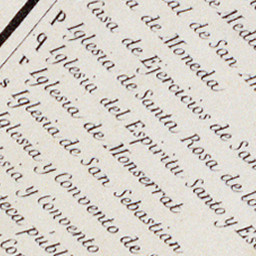 de Medi
al de San A
a de Moneda
Casa de Ejercicios de Sa
p Iglesia de Santa Rosa de
q Iglesia del Espiritu Santo y Es
r Iglesia de Monserrat
s Iglesia de San Sebastian
Iglesia y Convento de
esia y Convento
teca públ
Co